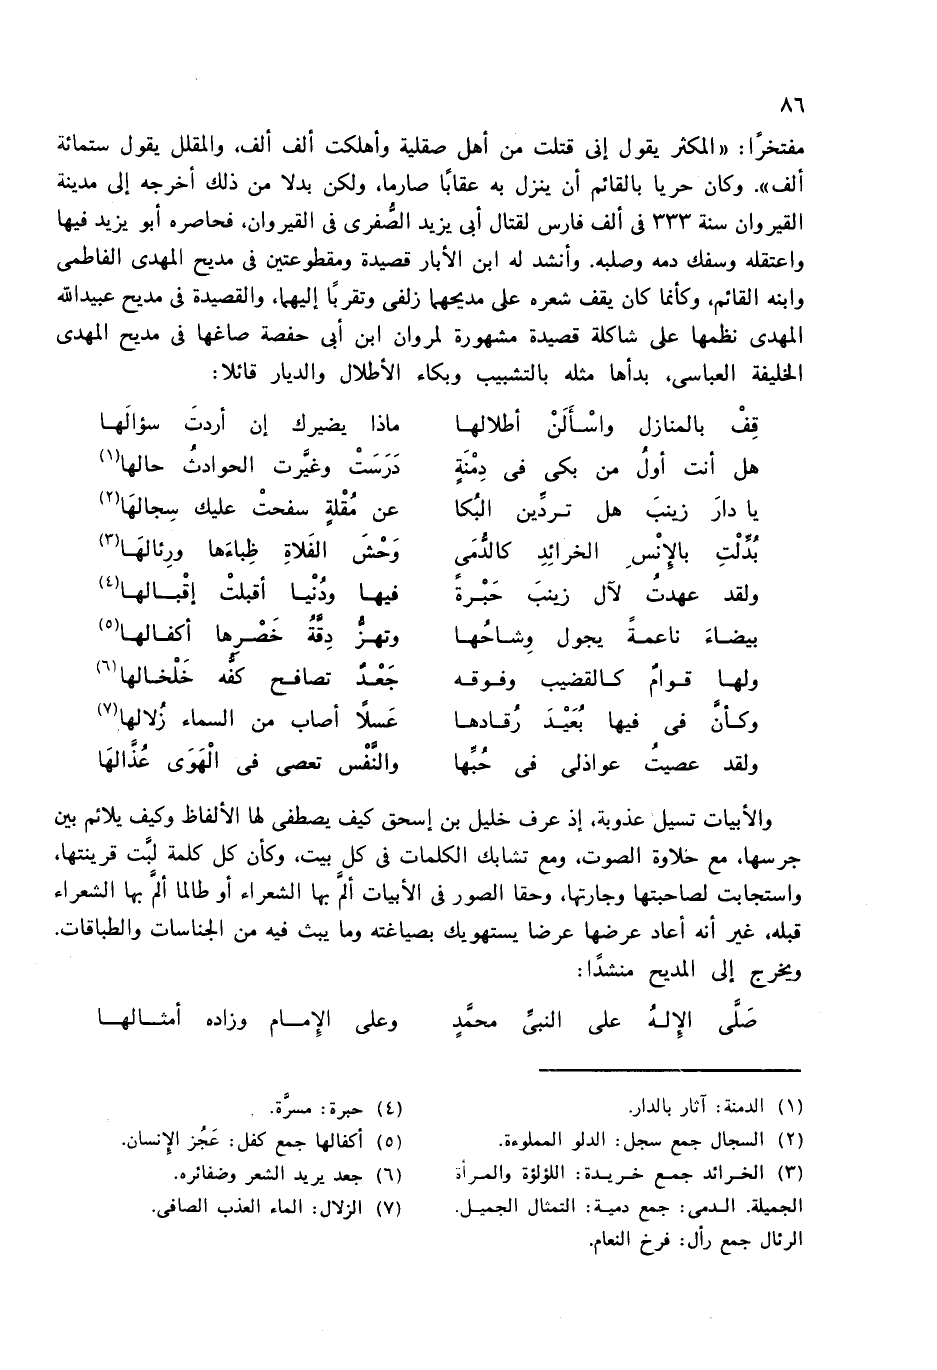 ٨٦
مفتخرًا: «المكثر يقول إنى قتلت من أهل صقلية وأهلكت ألف ألف، والمقلل يقول ستمائة
ألف». وكان حريا بالقائم أن ينزل به عقابًا صارما، ولكن بدلا من ذلك أخرجه إلى مدينة
القيروان سنة ٣٣٣ فى ألف فارس لقتال أبى يزيد الصُّفرى فى القيروان، فحاصره أبو يزيد فيها
واعتقله وسفك دمه وصلبه. وأنشد له ابن الأبار قصيدة ومقطوعتين فى مديح المهدى الفاطمى
وابنه القائم، وكأنما كان يقف شعره على مديحهما زلفى وتقربًا إليهما، والقصيدة فى مديح عبيدالله
المهدى نظمها على شاكلة قصيدة مشهورة لمروان ابن أبى حفصة صاغها فى مديح المهدى
الخليفة العباسى، بدأها مثله بالتشبيب وبكاء الأطلال والديار قائلا:
قِفْ بالمنازل واسْأَلَنْ أطلالهـا ماذا يضيرك إن أردتَ سؤالَهـا
هل أنت أولُ من بكى فى دِمْنَةٍ دَرَسَتْ وغيَّرت الحوادثُ حالها(١)
يا دارَ زينبَ هل تـردِّين البُكا عن مُقْلةٍ سفحتْ عليك سِجالهَا(٢)
بُدِّلْتِ بالإنْسِ الخرائِدِ كالدُّمَى وَحْشَ الفَلاةِ ظِباءَها ورِئالهَـا(٣)
ولقد عهدتُ لآل زينبَ حَبْـرةً فيهـا ودُنْيـا أقبلتْ إقْبـــالهـا(٤)
بيضـاءَ ناعمـةً يجول وِشـاحُهـا وتهـزُّ دِقَّةُ خَصْـرِها أكفـالهـا(٥)
ولهـا قـوامٌ كـالقضيب وفـوقـه جَعْـدٌ تصافـح كفُّه خَلْخـالها(٦)
وكـأنَّ فى فيها بُعَيْـدَ رُقـادهـا عَسلًا أصاب من السماء زُلالها(٧)
ولقد عصيتُ عواذلى فى حُبِّها والنَّفْس تعصى فى الْهَوَى عُذَّالهَا
والأبيات تسيل عذوبة، إذ عرف خليل بن إسحق كيف يصطفى لها الألفاظ وكيف يلائم بين
جرسها، مع حلاوة الصوت، ومع تشابك الكلمات فى كل بيت، وكأن كل كلمة لبَّت قرينتها،
واستجابت لصاحبتها وجارتها، وحقا الصور فى الأبيات ألمَّ بها الشعراء أو طالما ألمَّ بها الشعراء
قبله، غير أنه أعاد عرضها عرضا يستهويك بصياغته وما يبث فيه من الجناسات والطباقات.
ويخرج إلى المديح منشدًا:
صَلَّى الإلـهُ على النبىِّ محمَّدٍ وعلى الإمـــام وزاده أمثـــالهـــا
(١) الدمنة: آثار بالدار.
(٢) السجال جمع سجل: الدلو المملوءة.
(٣) الخـرائد جمـع خـريـدة: اللؤلؤة والمـرأة
الجميلة. الـدمى: جمع دميـة: التمثال الجميـل.
الرئال جمع رأل: فرخ النعام.
(٤) حبرة: مسرَّة.
(٥) أكفالها جمع كفل: عَجُز الإنسان.
(٦) جعد يريد الشعر وضفائره.
(٧) الزلال: الماء العذب الصافى.